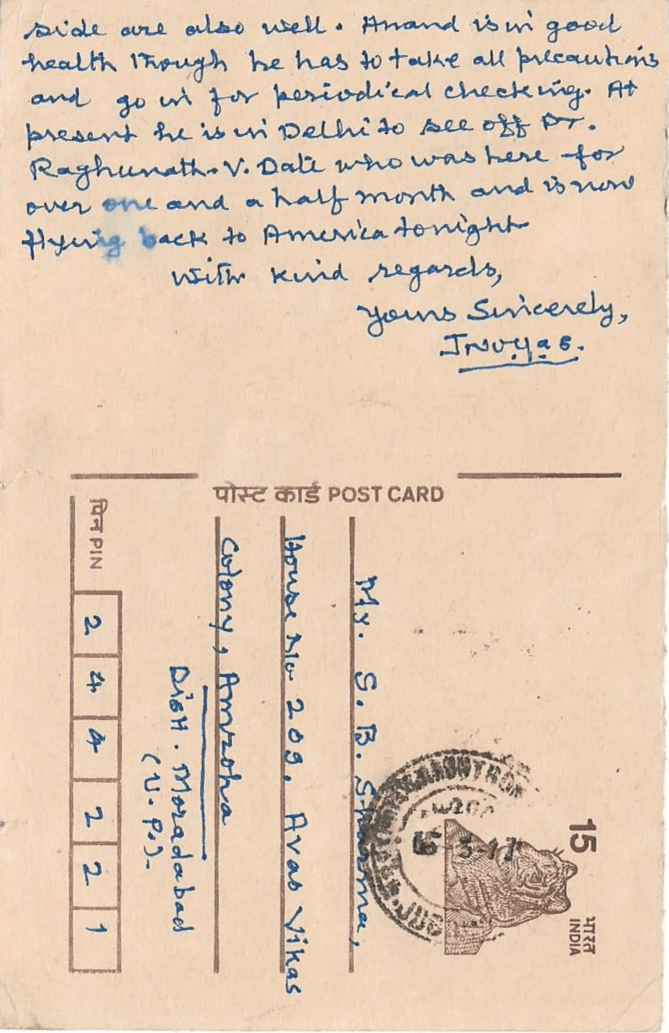 side are also well. Anand is in good
health though he has to take all precautions
and go in for periodical checking. At
present he is in Delhi to see off Dr.
Raghunath. V. Date who was here for
over one and a half month and is now
flying back to America tonight
With kind regards,
Yours Sincerely,
पोस्ट कार्ड POST CARD
15
भारत
INDIA
My. S. B. Sharma,
House No 209, Avas Vikas
Colony, Amroha
Distt. Moradabad
(U.P.)-
पिन PIN
2 4 4 2 2 1